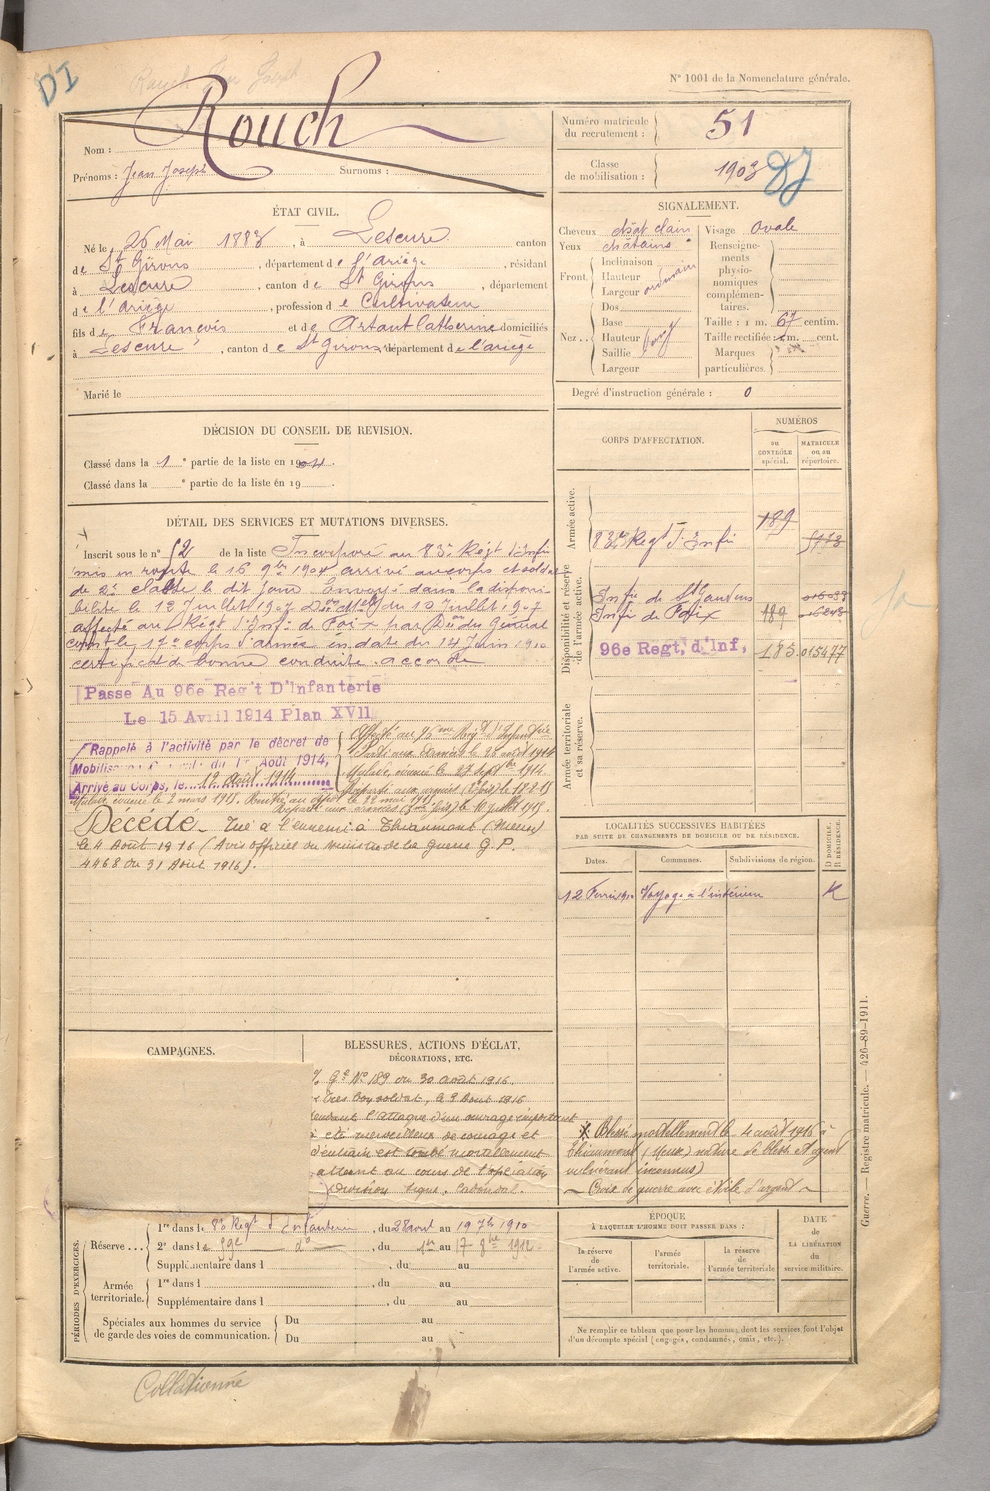 DI
Rouch Jean Joseph
N° 1001 de la Nomenclature générale.
Nom : Rouch
Prénoms : Jean Joseph Surnoms :
Numéro matricule du recrutement : 51
Classe de mobilisation : 1903
ÉTAT CIVIL.
Né le 26 Mai 1883, à Lescure canton
de St Girons, département de l'ariège, résidant
à Lescure, canton de St Girons, département
de l'ariège, profession de Cultivateur
fils de François et de Artaut Catherine domiciliés
à Lescure, canton de St Girons, département de l'ariège
Marié le
SIGNALEMENT.
Cheveux chât clain
Yeux châtains
Front. Inclinaison
Hauteur
Largeur
ordinaire
Nez .. Dos
Base
Hauteur
Saillie
Largeur
Visage ovale
Renseignements physionomiques complémentaires.
Taille : 1 m. 67 centim.
Taille rectifiée : 1 m. cent.
Marques particulières.
Degré d'instruction générale : 0
DÉCISION DU CONSEIL DE REVISION.
Classé dans la 1e partie de la liste en 1904.
Classé dans la e partie de la liste en 19 .
CORPS D'AFFECTATION.
NUMÉROS
AU CONTRÔLE spécial.
MATRICULE ou au répertoire.
Armée active.
83e Regt d'Infie 189
Disponibilité et réserve de l'armée active.
Infie de St Gaudens
Infie de Foix 189
96e Regt, d'Inf, 183 015477
Armée territoriale et sa réserve.
DÉTAIL DES SERVICES ET MUTATIONS DIVERSES.
Inscrit sous le n° 52 de la liste Incorporé au 83e Régt d'Infie
mis en route le 16 9bre 1904 arrivé au corps et soldat
de 2e classe le dit jour. Envoyé dans la disponi-
bilité le 12 Juillet 1907 Don Mlle du 10 Juillet 1907
affecté au Régt d'Infie de Foix par Don du Général
comt le 17e corps d'armée en date du 14 Juin 1910
certificat de bonne conduite accordé
Passé Au 96e Reg't D'Infanterie
Le 15 Avril 1914 Plan XVII
Rappelé à l'activité par le décret de
Mobilisation Générale du 1er Août 1914,
Arrivé au Corps, le 12 Août 1914
Affecté au 96me Regt d'Infanterie
Parti aux armées le 26 août 1914
Malade, évacué le 27 Sept bre 1914
Reparti aux armées (2e fois) le 18.2.15
Malade évacué le 2 mars 1915. Rentré au dépôt le 22 mai 1915
Reparti aux armées (3me fois) le 10 juillet 1915.
Décédé - Tué à l'ennemi à Thiaumont (Meuse)
le 4 Août 1916 (Avis officiel du ministre de la guerre G.P.
4468 du 31 Août 1916).
LOCALITÉS SUCCESSIVES HABITÉES
PAR SUITE DE CHANGEMENTS DE DOMICILE OU DE RÉSIDENCE.
Dates. Communes. Subdivisions de région. D DOMICILE. R RÉSIDENCE.
12 Fevrr 1910 Voyage à l'intérieur R
CAMPAGNES.
BLESSURES, ACTIONS D'ÉCLAT,
DÉCORATIONS, ETC.
Ge No 189 du 30 août 1916.
très bon soldat, le 3 Août 1916
pendant l'attaque d'un ouvrage important
a été merveilleux de courage et
d'entrain est tombé mortellement
atteint au cours de l'opération
Division signé, Cadoudal.
Blessé mortellement le 4 août 1916 à
Thiaumont (Meuse) nature de bless et agent
vulnérant inconnus)
Croix de guerre avec étoile d'argent
PÉRIODES D'EXERCICES.
Réserve... 1re dans le 83e Regt d'Infanterie, du 28 aout au 19 7bre 1910
2e dans le 59e do, du 1er au 17 8bre 1912
Supplémentaire dans l , du au
Armée territoriale. 1re dans l , du au
Supplémentaire dans l , du au
Spéciales aux hommes du service
de garde des voies de communication. Du au
Du au
ÉPOQUE
À LAQUELLE L'HOMME DOIT PASSER DANS :
la réserve de l'armée active.
l'armée territoriale.
la réserve de l'armée territoriale
DATE DE LA LIBÉRATION du service militaire.
Ne remplir ce tableau que pour les hommes dont les services font l'objet
d'un décompte spécial (engagés, condamnés, omis, etc.).
Guerre. — Registre matricule. — 426-89-1911.
Collationné